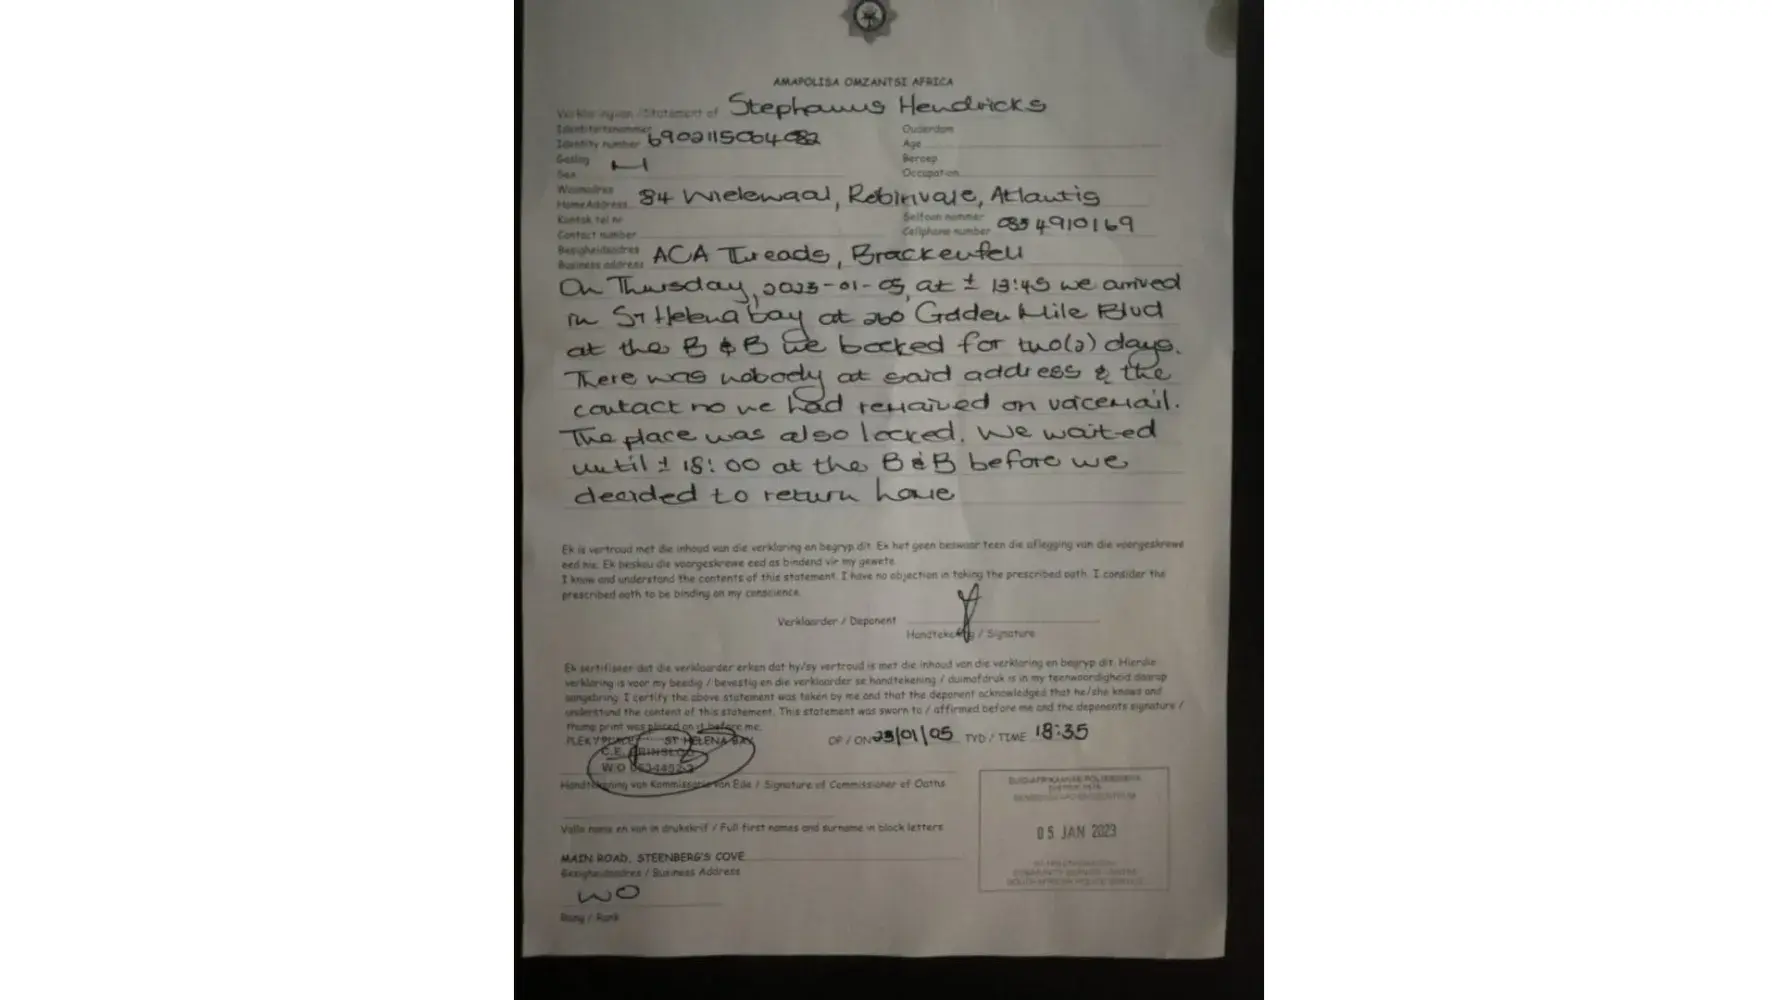 AMAPOLISA OMZANTSI AFRICA
Verklaring van / Statement of Stephanus Hendricks
Identiteitsnommer
Identity number 6902115064082
Ouderdom
Age
Geslag
Sex M
Beroep
Occupation
Woonadres
Home Address 84 Wielewaal, Robinvale, Atlantis
Kontak tel nr
Contact number
Selfoon nommer
Cellphone number 0854910169
Besigheidsadres
Business address ACA Threads, Brackenfell
On Thursday, 2023-01-05, at ± 13:45 we arrived
in St Helena bay at 260 Golden Mile Blvd
at the B & B we booked for two(2) days.
There was nobody at said address & the
contact no we had remained on voicemail.
The place was also locked. We waited
until ± 18:00 at the B & B before we
decided to return home
Ek is vertroud met die inhoud van die verklaring en begryp dit. Ek het geen beswaar teen die aflegging van die voorgeskrewe
eed nie. Ek beskou die voorgeskrewe eed as bindend vir my gewete.
I know and understand the contents of this statement. I have no objection in taking the prescribed oath. I consider the
prescribed oath to be binding on my conscience.
Verklaarder / Deponent
Handtekening / Signature
Ek sertifiseer dat die verklaarder erken dat hy/sy vertroud is met die inhoud van die verklaring en begryp dit. Hierdie
verklaring is voor my beedig / bevestig en die verklaarder se handtekening / duimafdruk is in my teenwoordigheid daarop
aangebring. I certify the above statement was taken by me and that the deponent acknowledged that he/she knows and
understand the content of this statement. This statement was sworn to / affirmed before me and the deponents signature /
thump print was placed on it before me.
PLEK / PLACE ST HELENA BAY OP / ON 23/01/05 TYD / TIME 18:35
C.E. PRINSLOO
W/O
Handtekening van Kommissaris van Ede / Signature of Commissioner of Oaths
Volle name en van in drukskrif / Full first names and surname in block letters
MAIN ROAD, STEENBERG'S COVE
Besigheidsadres / Business Address
WO
Rang / Rank
05 JAN 2023
COMMUNITY SERVICE CENTRE
SOUTH AFRICAN POLICE SERVICE